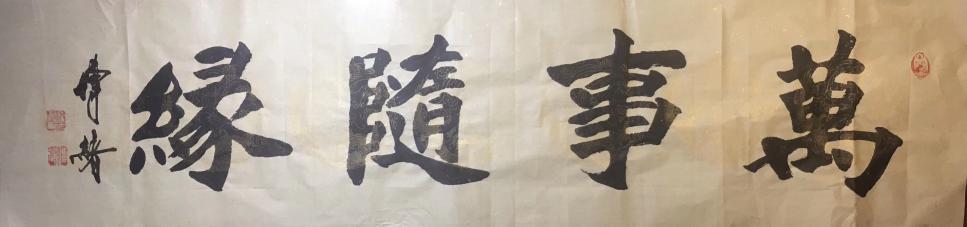 萬事隨緣